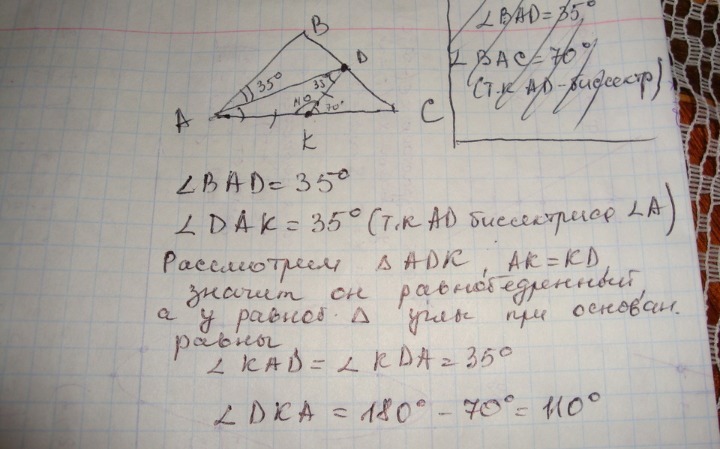 ∠BAD = 35°
∠BAC = 70°
(т.к AD - биссектр)
B
35°
D
35°
110
70°
A
C
K
∠BAD = 35°
∠DAK = 35° (т.к AD биссектриса ∠A)
Рассмотрим Δ ADK, AK = KD
значит он равнобедренный,
а у равноб. Δ углы при основан.
равны
∠KAD = ∠KDA = 35°
∠DKA = 180° - 70° = 110°